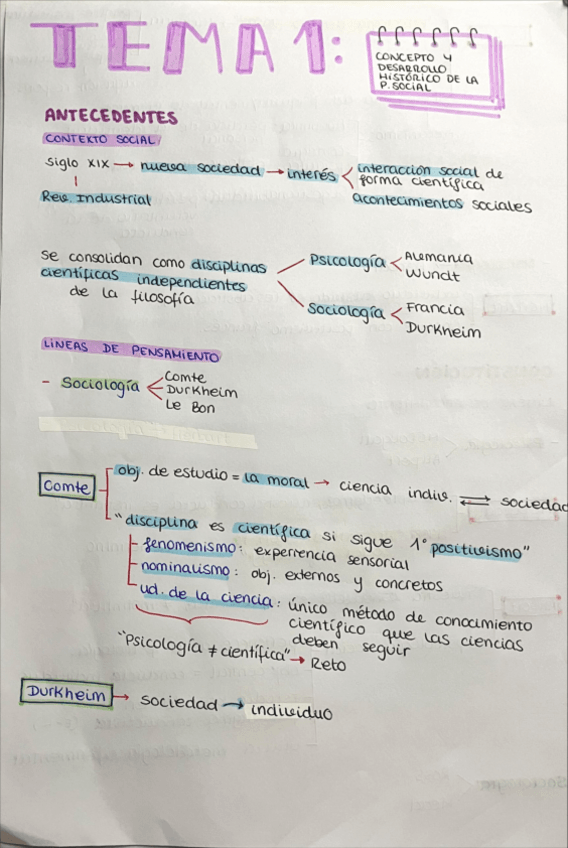 TEMA 1:
CONCEPTO Y
DESARROLLO
HISTÓRICO DE LA
P. SOCIAL
ANTECEDENTES
CONTEXTO SOCIAL
siglo XIX → nueva sociedad → interés
interacción social de
forma científica
Acontecimientos sociales
Rev. Industrial
Se consolidan como disciplinas
científicas independientes
de la filosofía
Psicología
Alemania
Wundt
Sociología
Francia
Durkheim
LÍNEAS DE PENSAMIENTO
- Sociología
Comte
Durkheim
Le Bon
Comte
obj. de estudio = la moral → ciencia indiv. ⇄ sociedad
"disciplina es científica si sigue 1º positivismo"
fenomenismo: experiencia sensorial
nominalismo: obj. externos y concretos
ud. de la ciencia: único método de conocimiento
científico que las ciencias
deben seguir
"Psicología ≠ científica" → Reto
Durkheim → sociedad → individuo